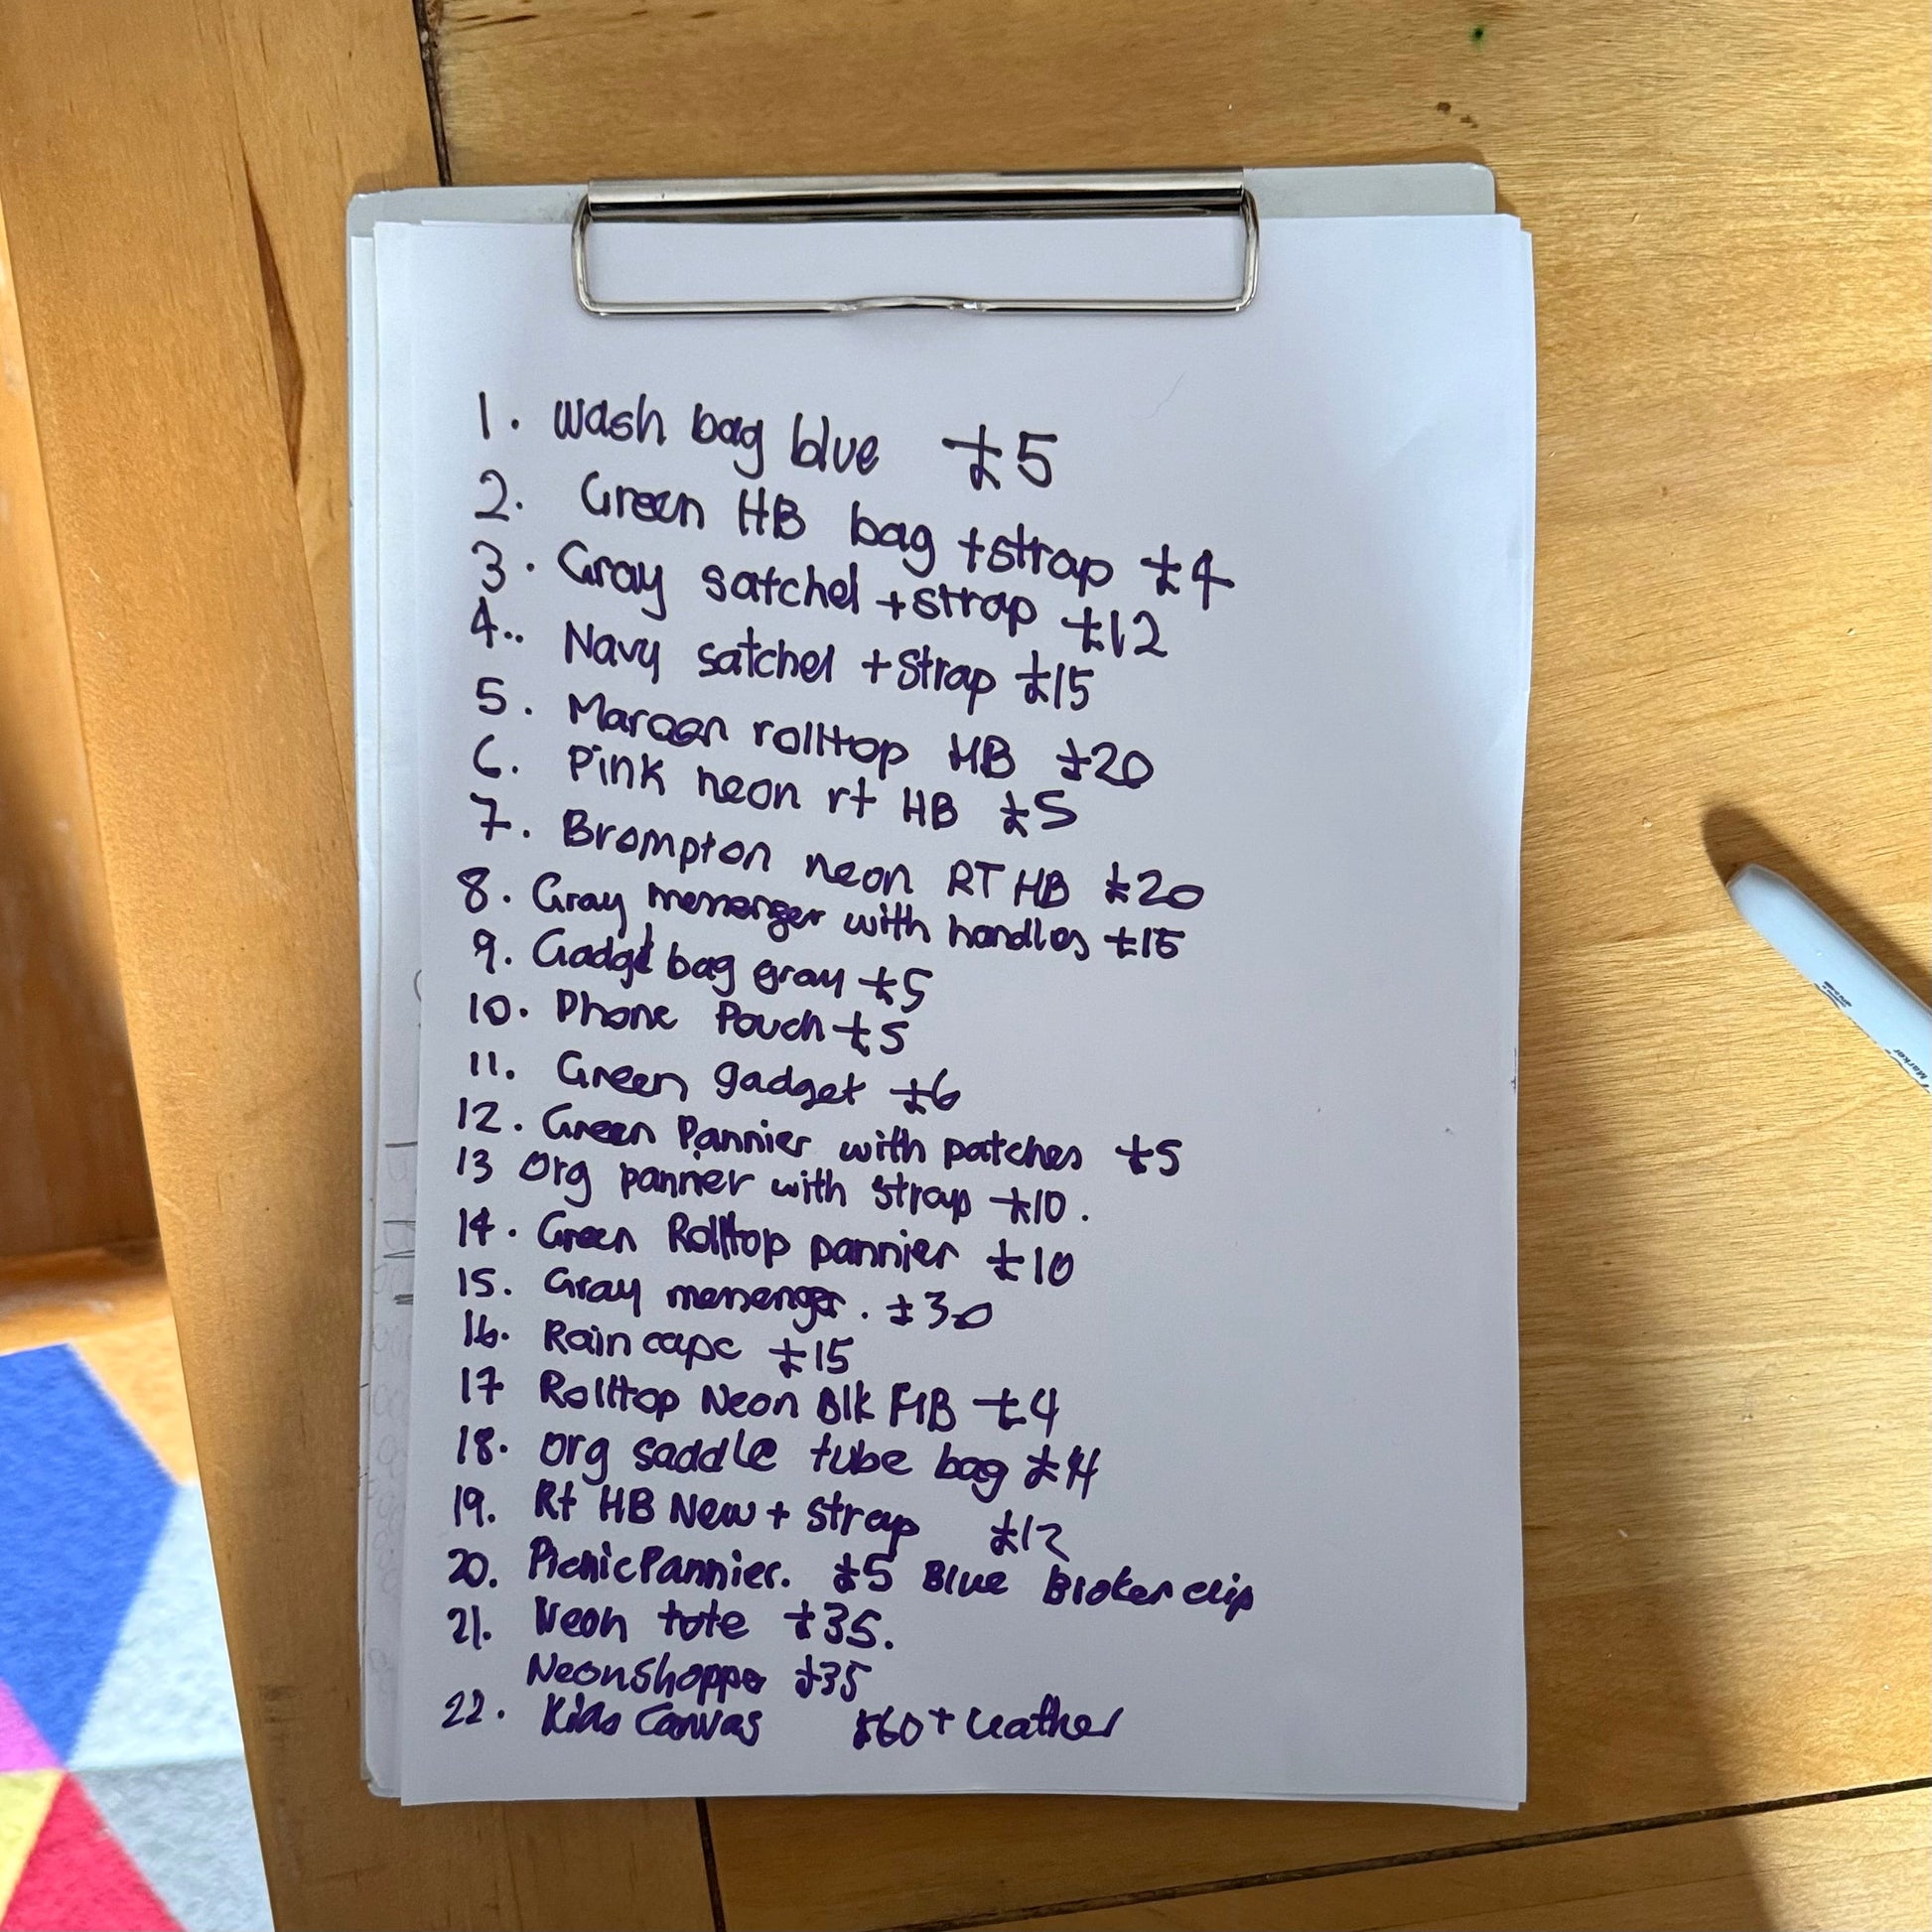 1. Wash bag blue £5
2. Green HB bag + strap £4
3. Gray satchel + strap £12
4.. Navy satchel + Strap £15
5. Maroon rolltop HB £20
6. Pink neon rt HB £5
7. Brompton neon RT HB £20
8. Gray messenger with handles £15
9. Gadget bag gray £5
10. Phone Pouch £5
11. Green gadget £6
12. Green Pannier with patches £5
13 Org pannier with strap £10.
14. Green Rolltop pannier £10
15. Gray messenger. £30
16. Rain cape £15
17 Rolltop Neon Blk HB £4
18. Org saddle tube bag £4
19. Rt HB New + strap £12
20. Picnic Pannier. £5 Blue Broken clip
21. Neon tote £35.
Neon Shopper £35
22. Kids Canvas £60 + Leather
Marker